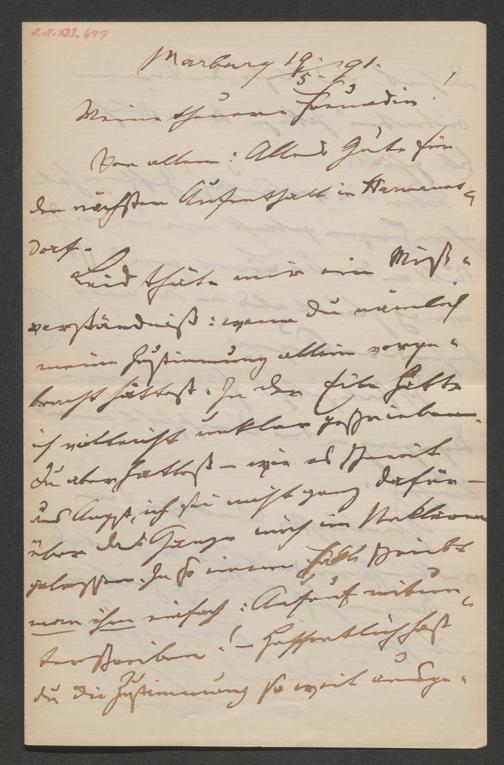 J.N. 132.649
Marburg 19/5. 91.
Meine theuere Freundin!
Vor allem: Alles Gute für
den nächsten Aufenthalt in Hermanns-
dorf.
Leid thäte mir ein Miß-
verständniß: wenn du nämlich
meine Zustimmung allein vorge-
bracht hättest. In der Eile hatte
ich vielleicht unklar geschrieben.
du aber hattest – wie es
aus Angst, ich sei nicht ganz dafür –
über das Ganze mich im Unklaren
gelassen. In so einem Falle schreibt
man ihm einfach: Aufruf mitun-
terschreiben! – Hoffentlich hast
du die Zustimmung so weit ausge-